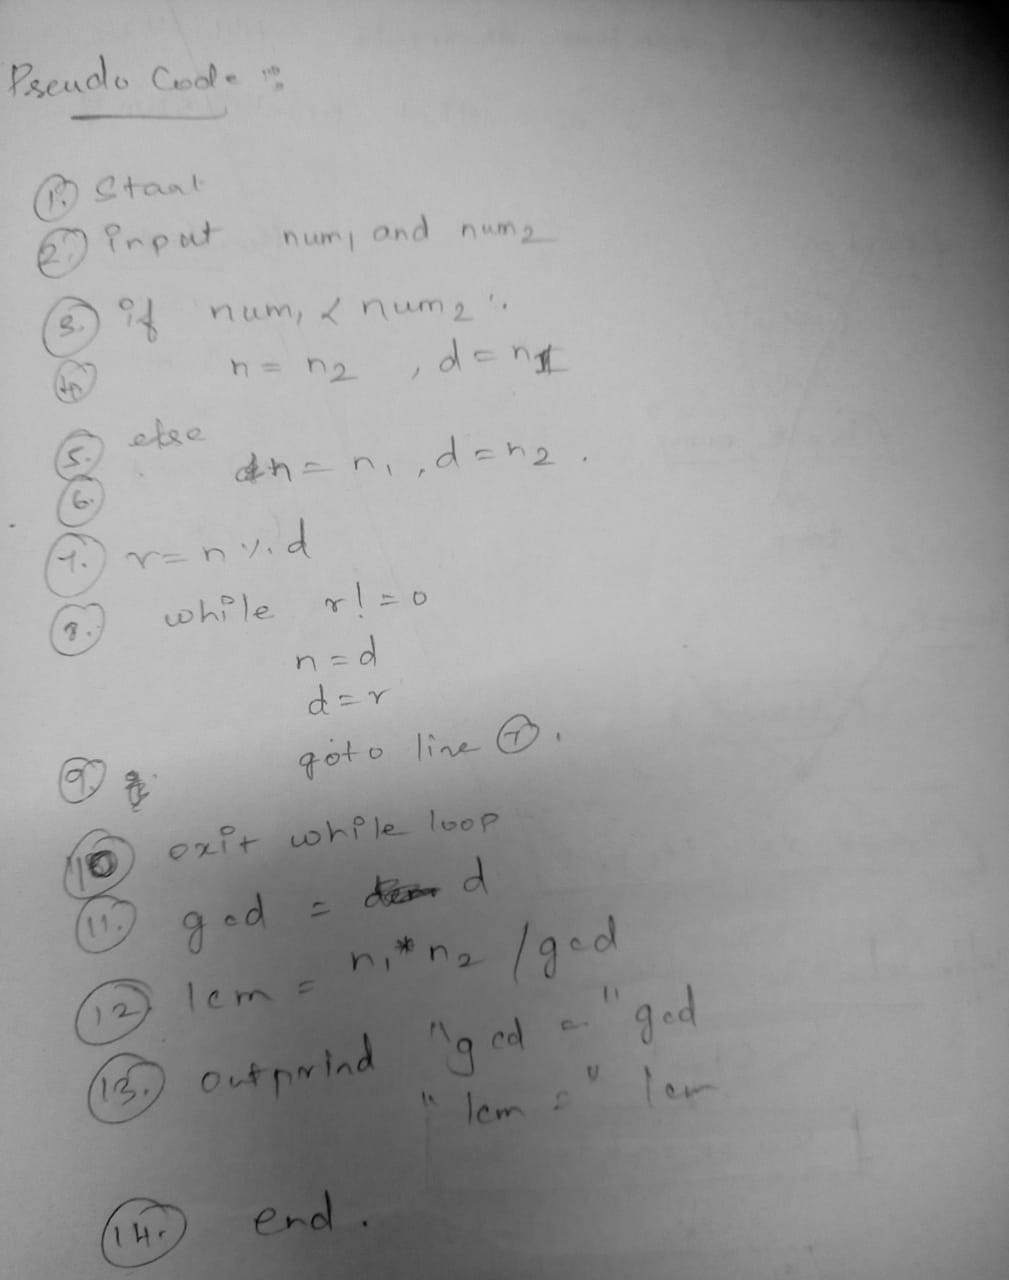 Pseudo Code :
1. Staat
2. input num1 and num2
3. if num1 < num2 :
4. n = n2 , d = n1
5. else
6. n = n1 , d = n2 .
7. r = n % d
8. while r != 0
n = d
d = r
goto line 7 .
9.
10 exit while loop
11. gcd = d
12. lcm = n1 * n2 / gcd
13. outprind "gcd = " gcd
" lcm = " lcm
14. end .